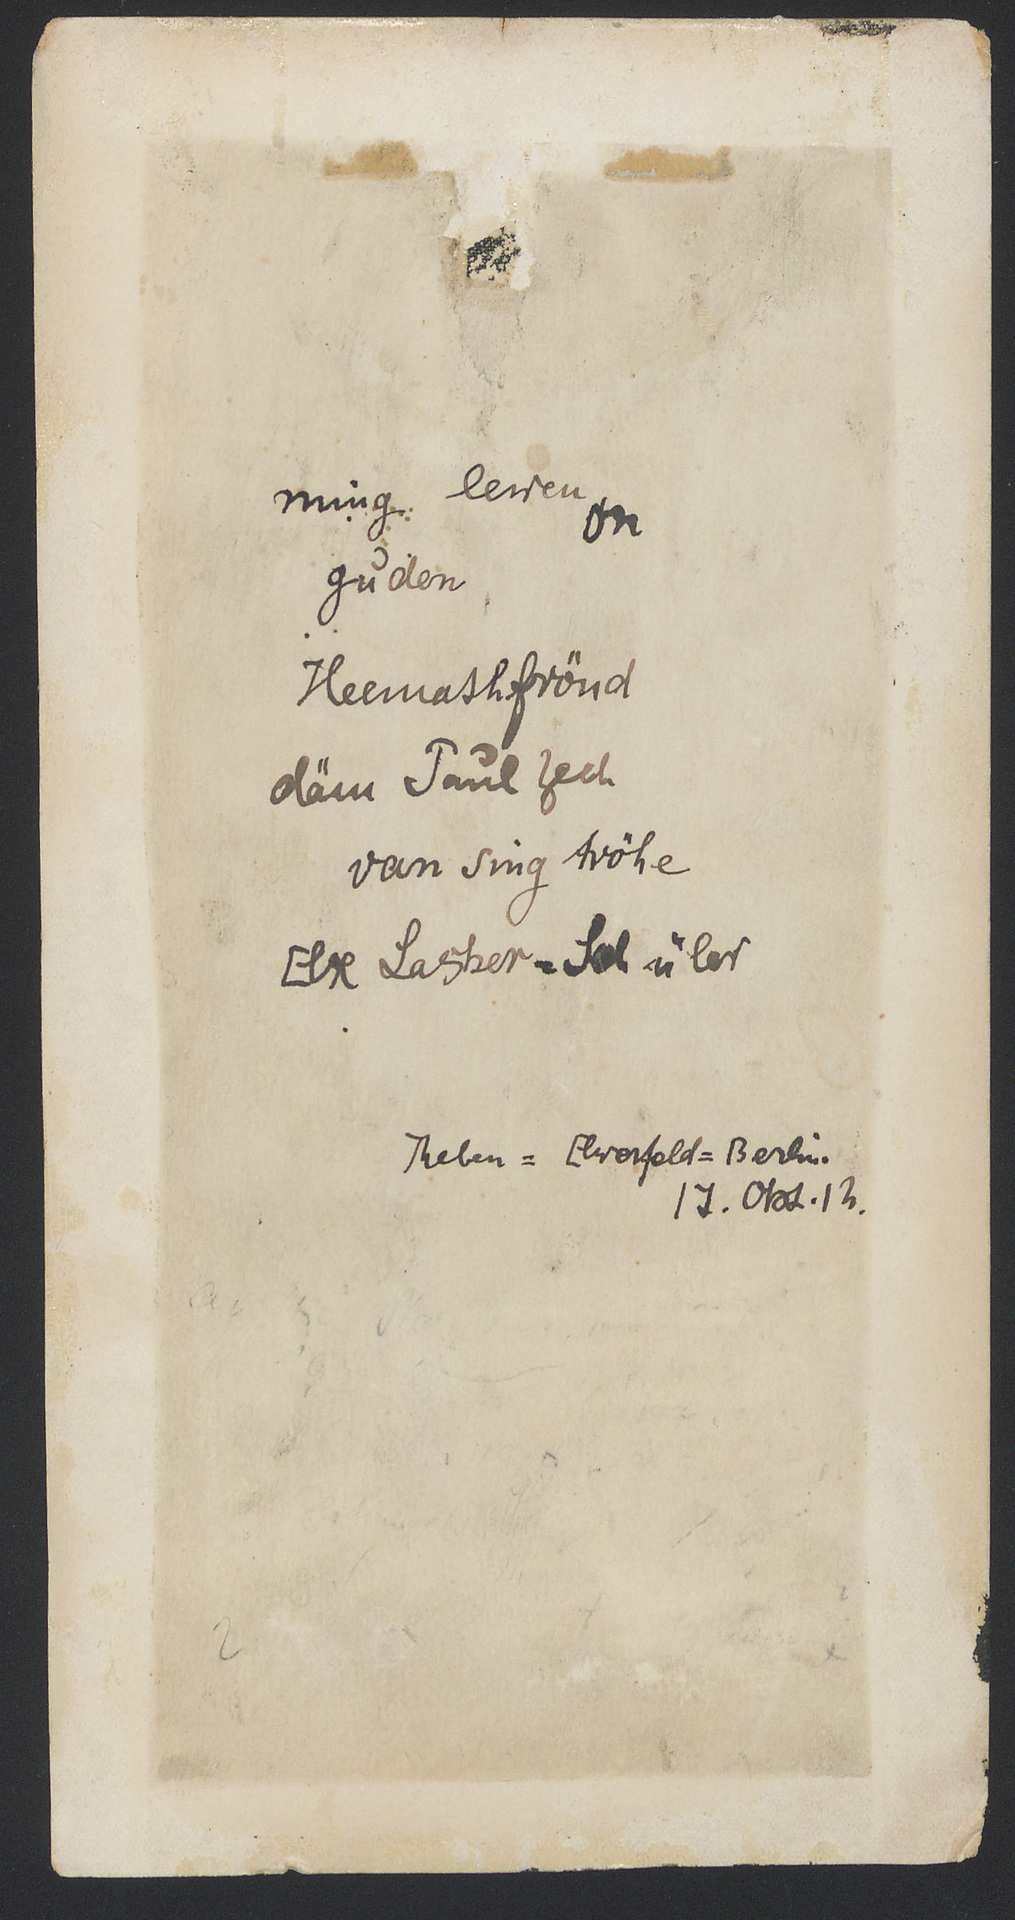 ming lewen on
guden
Heemathfrönd
däm Paul Zech
van sing tröhe
Else Lasker=Schüler
Theben = Elwerfeld=Berlin.
17. Okt. 12.
2